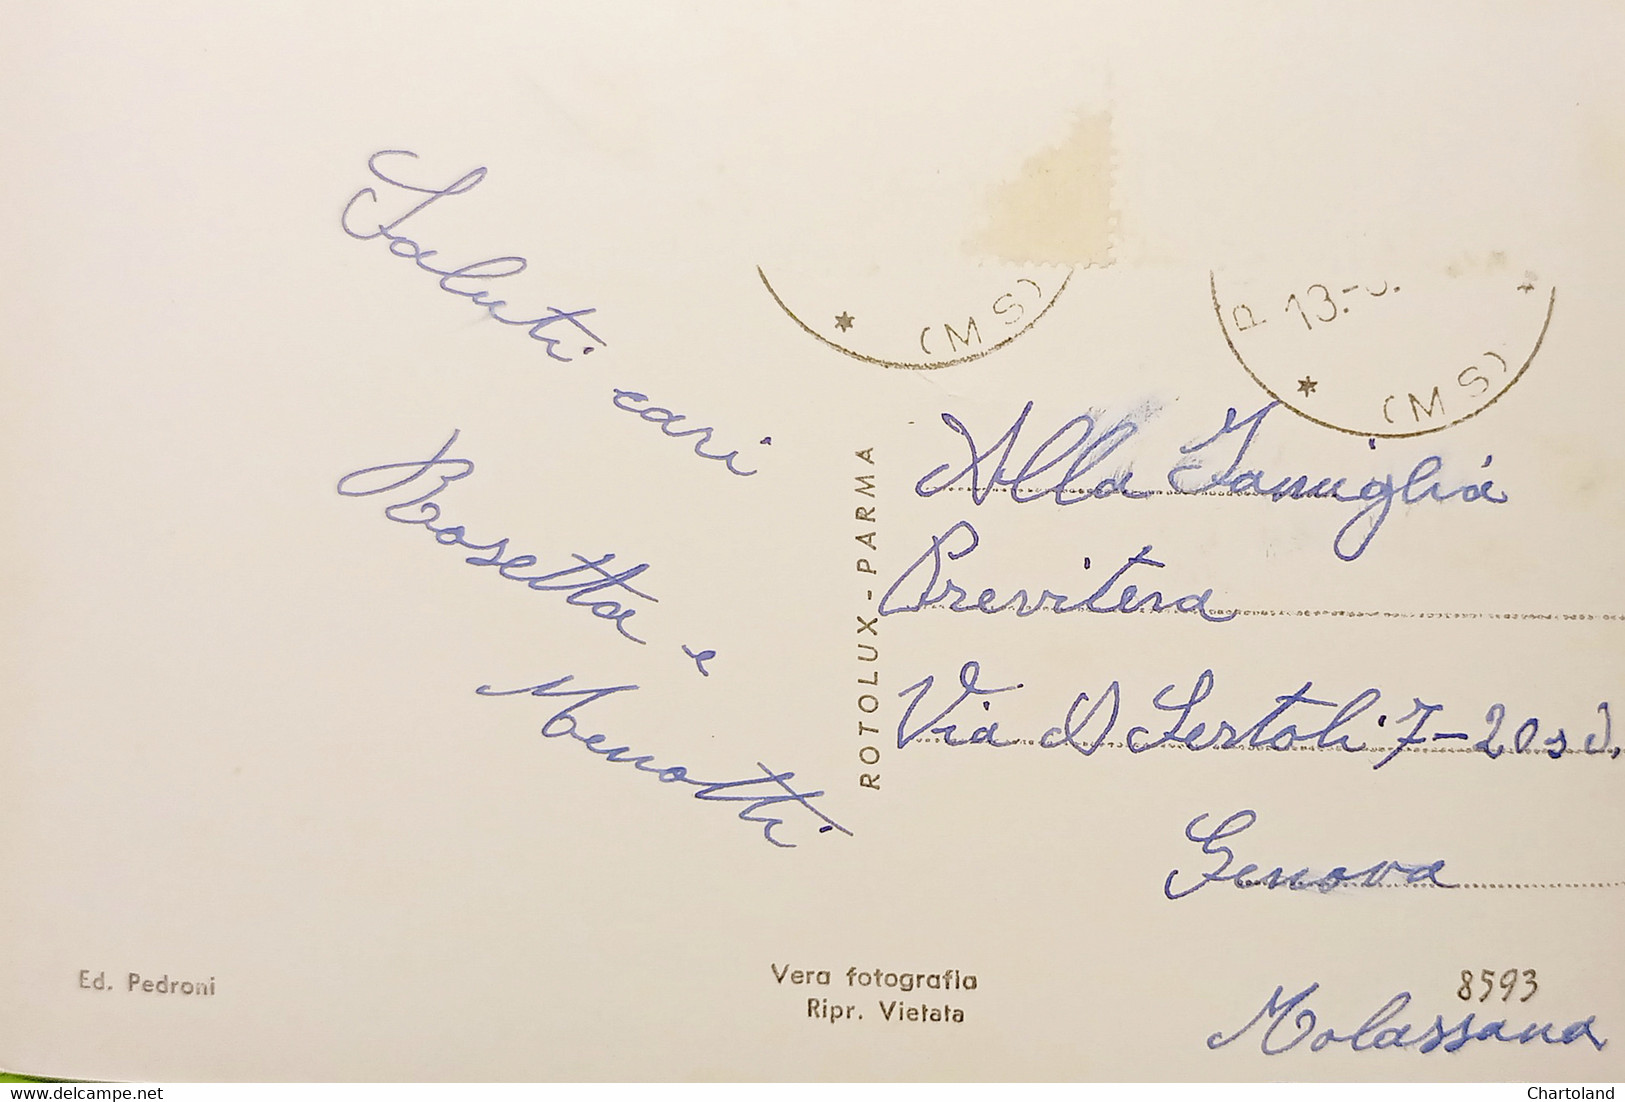 Saluti cari
Rosetta e
Menotti
(MS)
P 13.-
(MS)
ROTOLUX - PARMA
Alla Famiglia
Previtera
Via A Sertoli 7-20
Genova
Molassana
8593
Ed. Pedroni
Vera fotografia
Ripr. Vietata
the-postcard.com
Chartoland